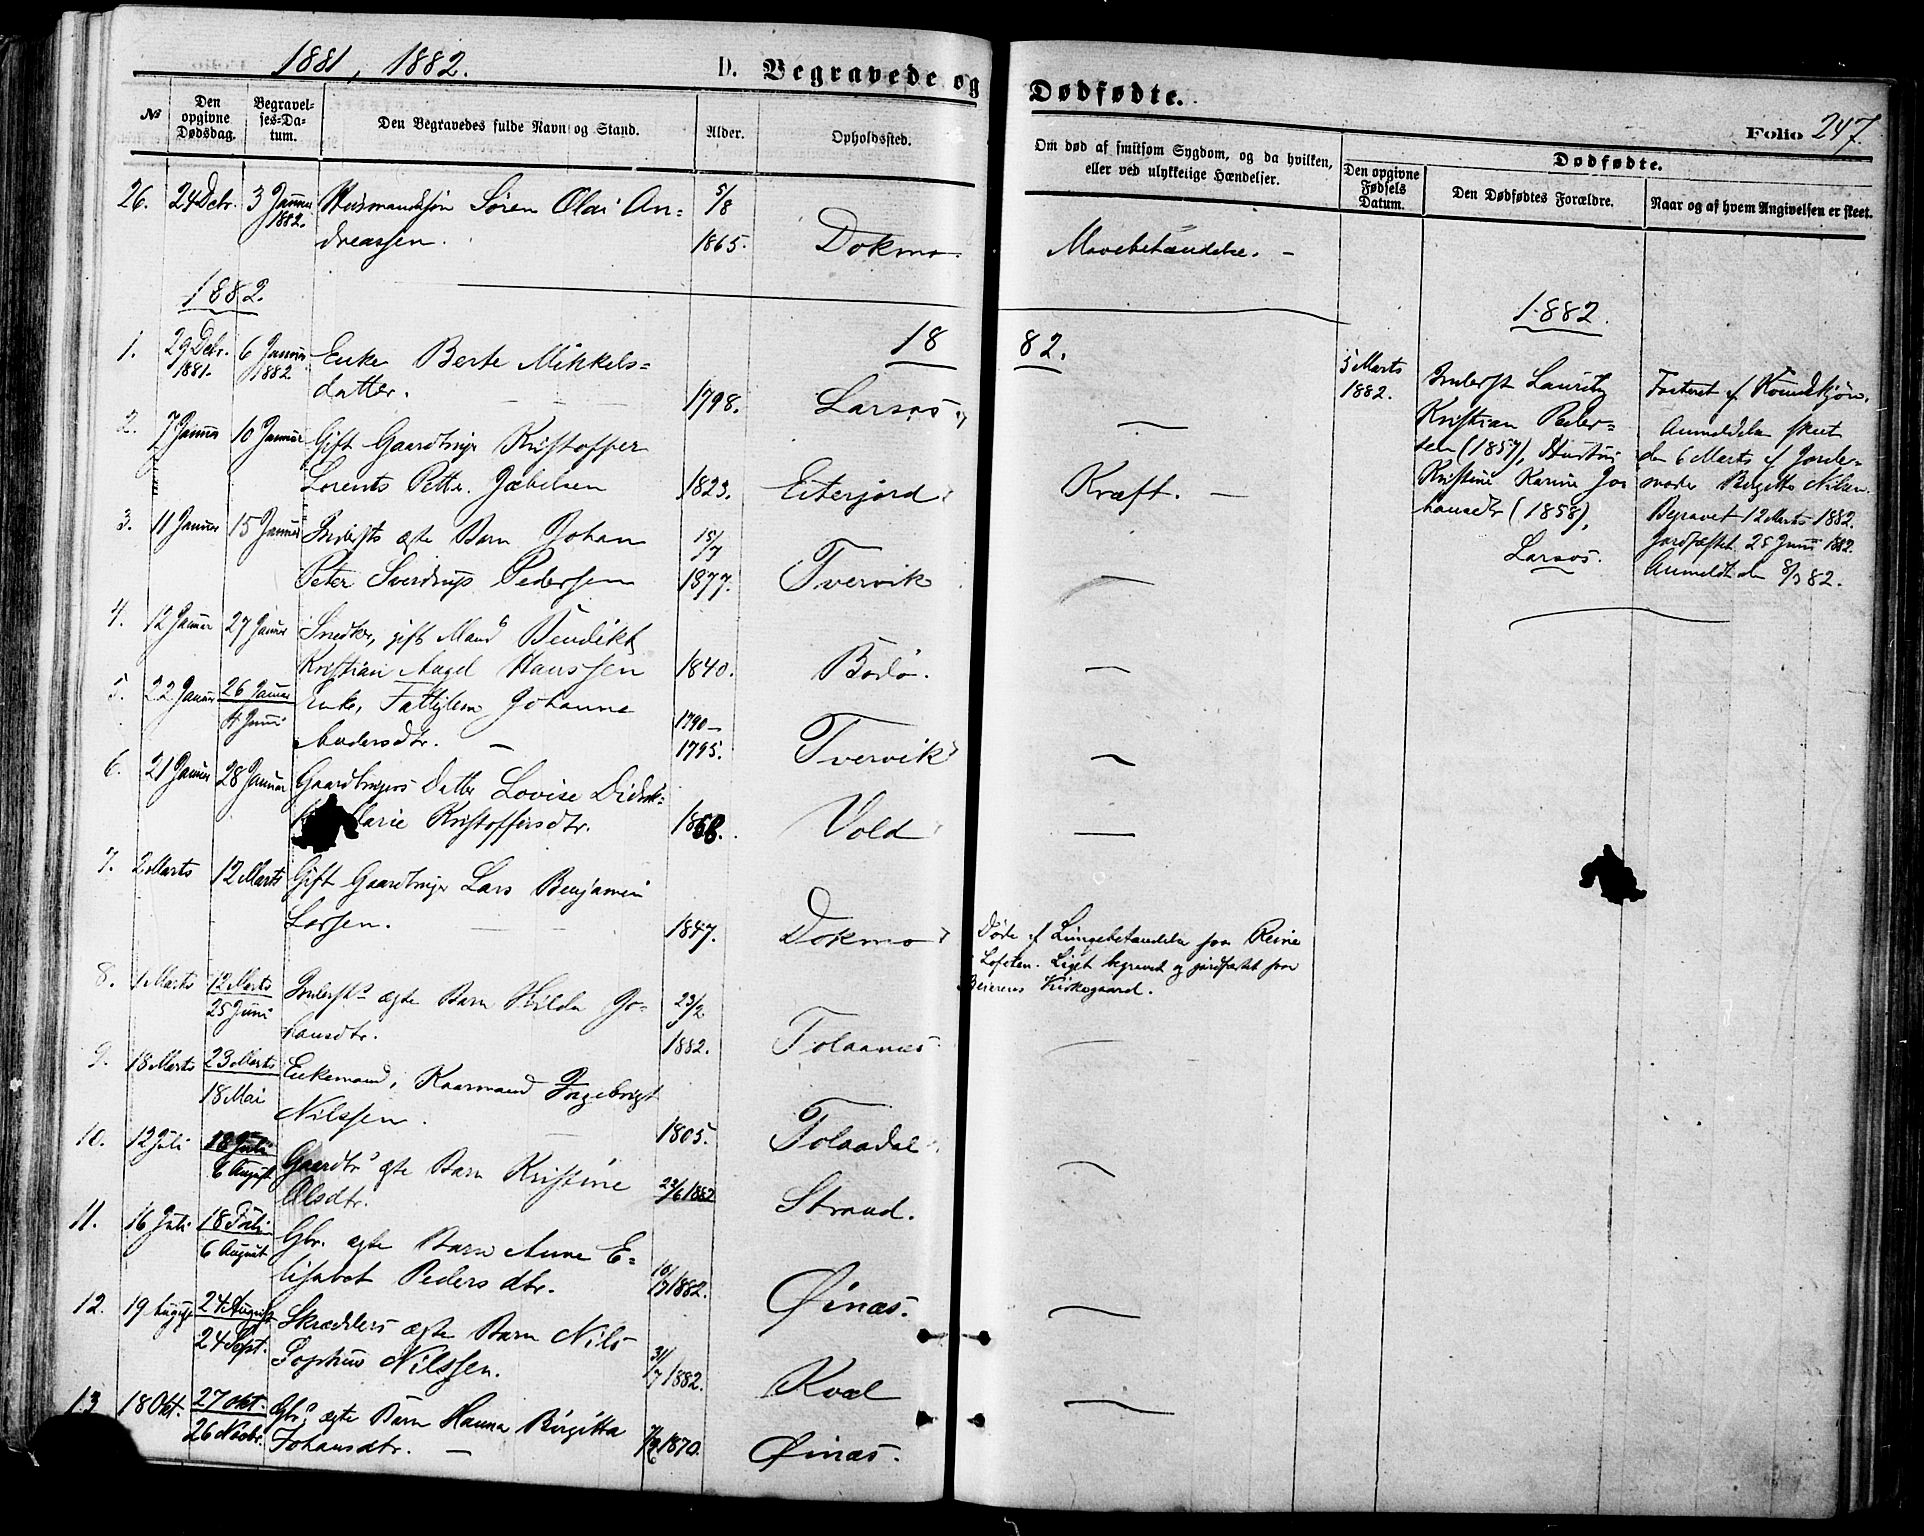 1881, 1882.
D. Begravede og Dødfødte.
Folio 247.
№
Den opgivne Dødsdag.
Begravel-
ses-Da-
tum.
Den Begravedes fulde Navn og Stand.
Alder.
Opholdssted.
Om død af smitsom Sygdom, og da hvilken,
eller ved ulykkelige Hændelser.
Dødfødte.
Den opgivne
Fødsels
Datum.
Den Dødfødtes Forældre.
Naar og af hvem Angivelsen er skeet.
26. 24 Debr. 3 Januar 1882. Husmandssøn Søren Olai An=
dreassen. 5/8 1865. Dokmo. Mavebetændelse. —
1882.
1882.
18 82.
1. 29 Debr. 1881. 6 Januar 1882 Enke Berte Mikkels=
datter. 1798. Larsos
2. 7 Januar 10 Januar Gift Gaardbruger Kristoffer
Lorents Petter Jæbelsen 1823. Eiterjord Kræft. —
3. 11 Januar 15 Januar Inderst ægte Barn Johan
Peter Sverdrup Pedersen 15/7 1877. Tvervik —
4. 12 Januar 27 Januar Snedker, gift Mand Bendikt
Kristian Angel Hanssen 1840. Bodø. —
5. 22 Januar 26 Januar
4 Juni Enke, Fattiglem Johanne
Andersdtr. — 1790—
1795. Tvervik —
6. 21 Januar 28 Januar Gaardbrugers Datter Lovise Didrik=
Marie Kristoffersdtr. 1868. Vold —
7. 2 Marts 12 Marts Gift Gaardbruger Lars Benjamin
Larsen. 1847. Dokmo
Døde af Lungebetændelse paa Reine
i Lofoten. Liget begravet og jordfæstet paa
Beierens Kirkegaard.
8. 1 Marts 12 Marts
25 Juni Inderst ægte Barn Hilda Jo=
hansdtr. 23/2 1882. Tolaanes —
9. 18 Marts 23 Marts
18 Mai Enkemand, Kaarmand Ingebrigt
Nilssen. 1805. Tolaadal
10. 12 Juli 18 Juli
6 August Gaardbr ægte Barn Kristine
Olsdtr. 22/6 1882 Strand. —
11. 16 Juli 18 Juli
6 August Gbr. ægte Barn Anne E=
lisabet Pedersdtr. 10/7 1882. Øinæs. —
12. 19 August 24 August
24 Sept. Skrædders ægte Barn Nils
Sophus Nilssen. 31/7 1882. Kvæl —
13 18 Okt. 27 Okt.
26 Novbr. Gbr ægte Barn Hanna Birgitta
Johansdtr. — 1870. Øinæs.
5 Marts
1882.
Inderst Lauritz
Kristian Peder=
sen (1857), Hustru
Kristine Karine Jo=
hansdtr (1858),
Larsos.
Anmeldelse skeet
den 6 Marts af Jorde=
moder Birgitte Nilsen.
Begravet 12 Marts 1882.
Jordfæstet 25 Juni 1882.
Anmeldt den 8/3 82.